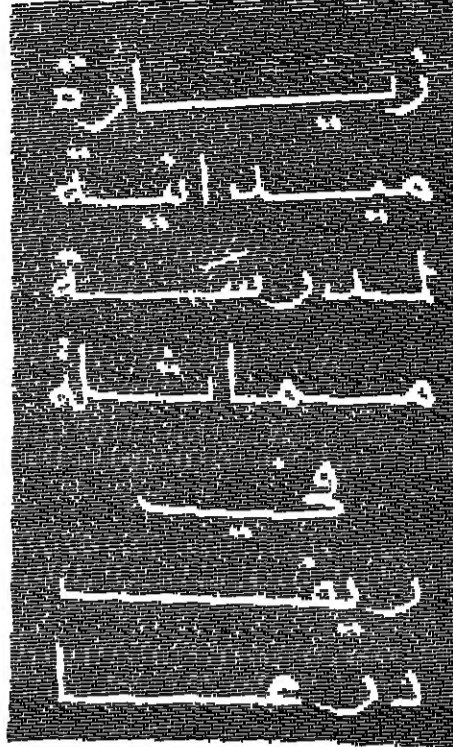 زيارة
ميدانية
لمدرسَة
مماثلة
في
ريف
درعا